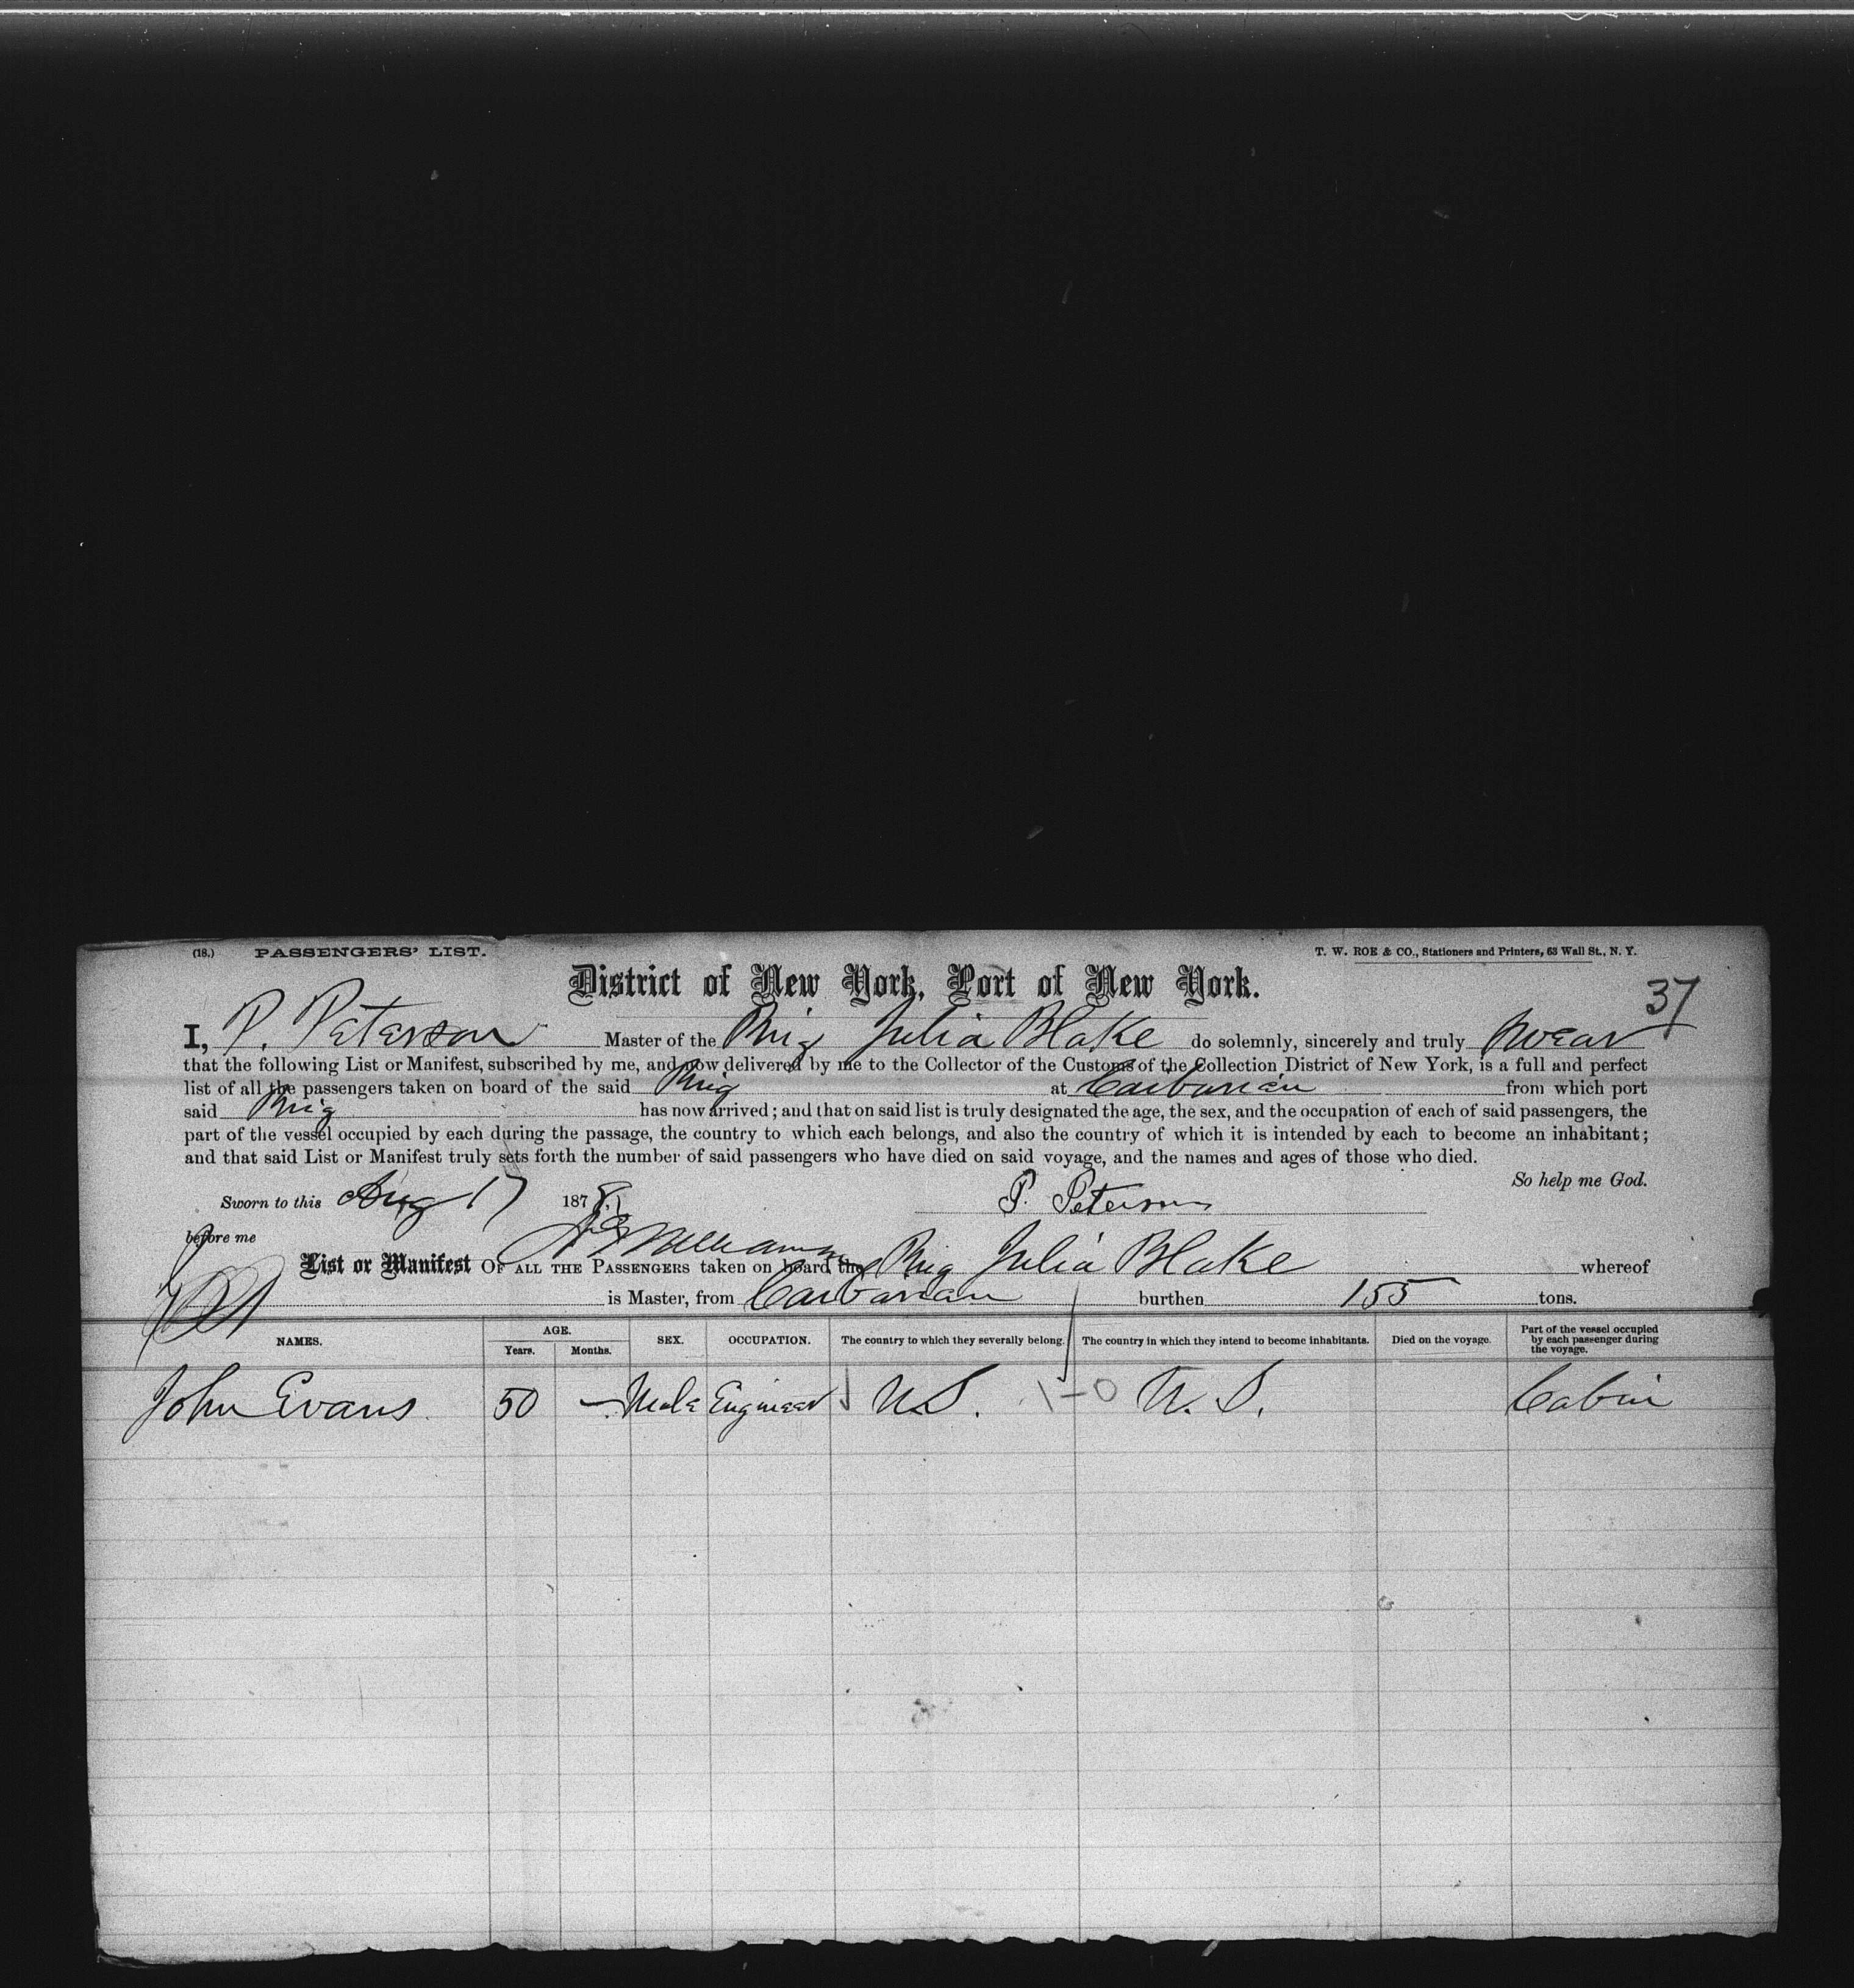 (18.) PASSENGERS' LIST. T. W. ROE & CO., Stationers and Printers, 63 Wall St., N. Y.
District of New York, Port of New York.
37
I, P. Peterson Master of the Brig Julia Blake do solemnly, sincerely and truly swear
that the following List or Manifest, subscribed by me, and now delivered by me to the Collector of the Customs of the Collection District of New York, is a full and perfect
list of all the passengers taken on board of the said Brig at Carbarian from which port
said Brig has now arrived; and that on said list is truly designated the age, the sex, and the occupation of each of said passengers, the
part of the vessel occupied by each during the passage, the country to which each belongs, and also the country of which it is intended by each to become an inhabitant;
and that said List or Manifest truly sets forth the number of said passengers who have died on said voyage, and the names and ages of those who died.
So help me God.
Sworn to this Aug 17 1878, P. Peterson
before me Williams
List or Manifest OF ALL THE PASSENGERS taken on board the Brig Julia Blake whereof
is Master, from Carbarian burthen 155 tons.
NAMES. AGE. Years. Months. SEX. OCCUPATION. The country to which they severally belong. The country in which they intend to become inhabitants. Died on the voyage. Part of the vessel occupied by each passenger during the voyage.
John Evans 50 — Male Engineer U.S. 1-0 U.S. Cabin